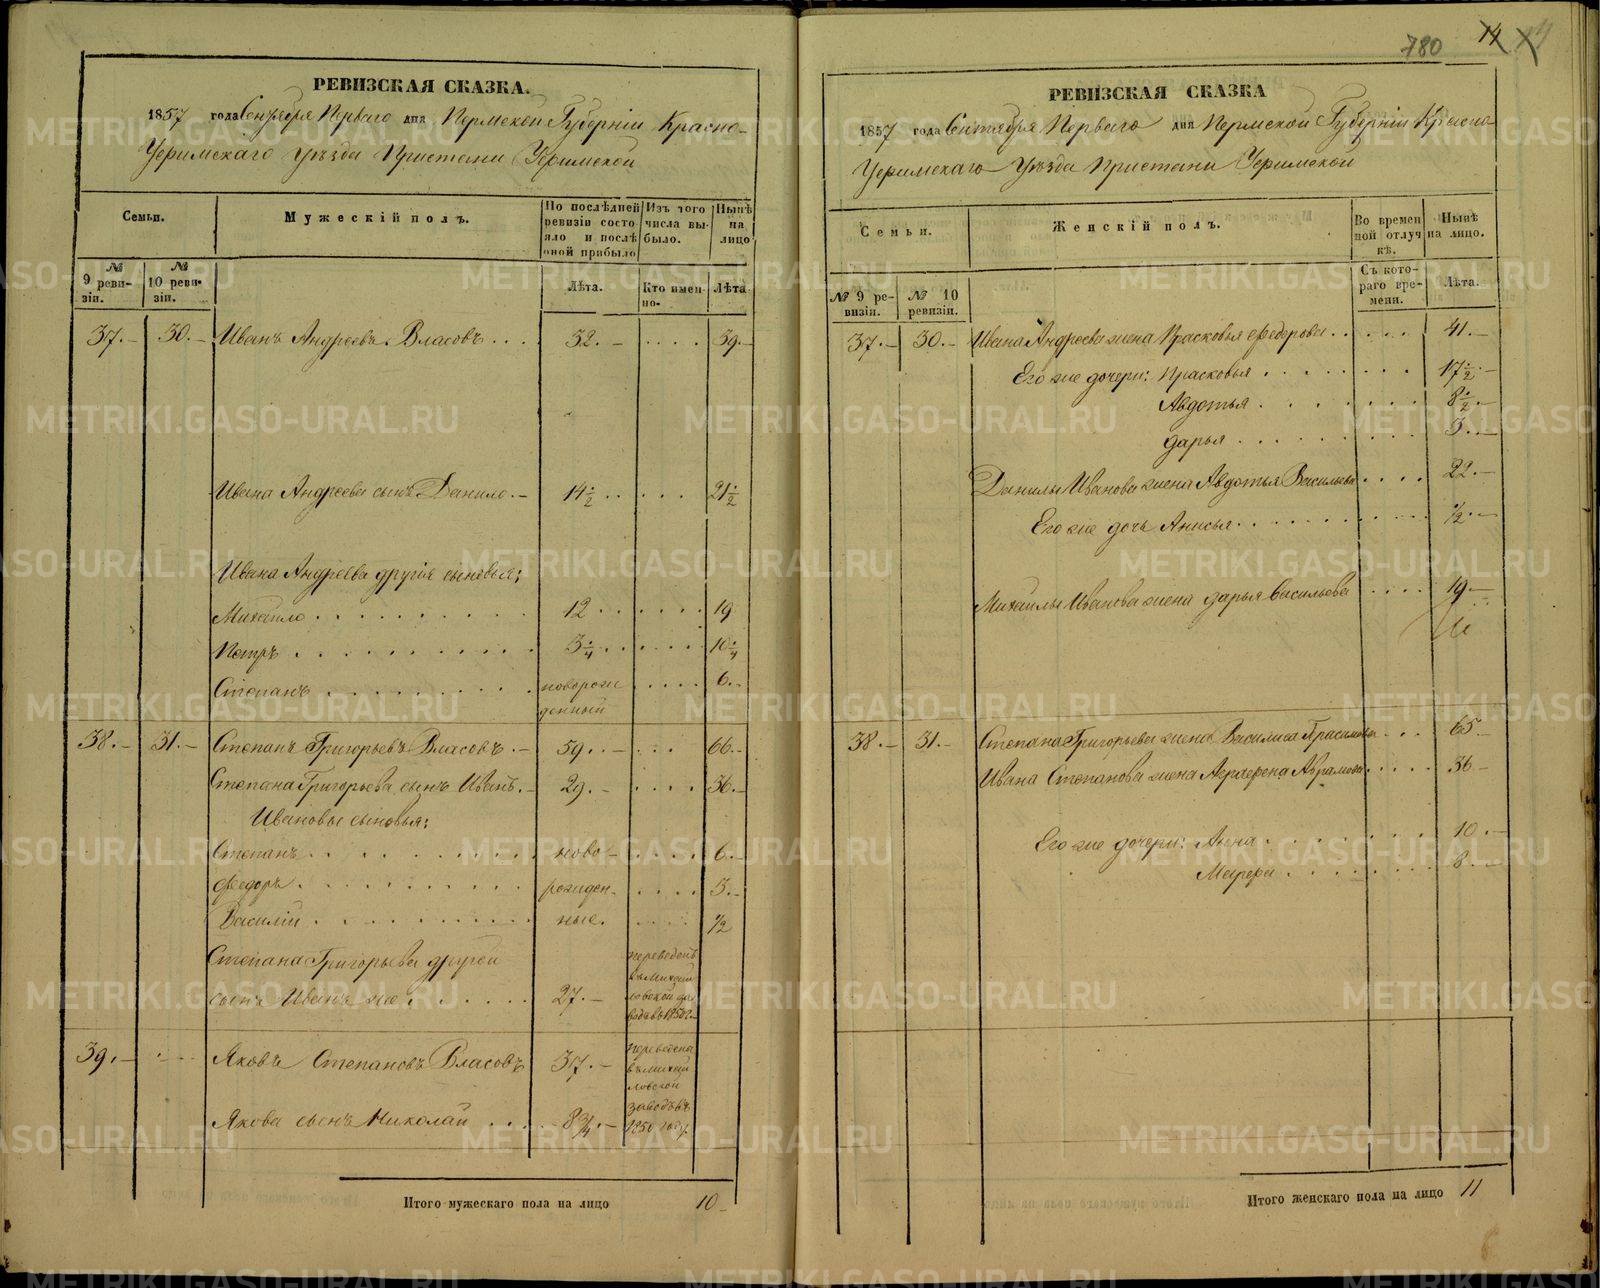 780 14 14
РЕВИЗСКАЯ СКАЗКА.
1857 года Сентября Перваго дня Пермской Губерніи Красно-
Уфимскаго уѣзда Пристани Уфимской
Семьи.
Мужескій полъ.
По послѣдней ревизіи состояло и послѣ оной прибыло
Изъ того числа выбыло.
Нынѣ на лицо
№ 9 ревизіи.
№ 10 ревизіи.
Лѣта.
Кто именно.
Лѣта
37. 30. Иванъ Андреевъ Власовъ 32. 39
Ивана Андреева сынъ Данило 14 1/2 21 1/2
Ивана Андреева другія сыновья:
Михайло 12 19
Петръ 3 1/4 10 1/4
Степанъ новорожденный 6.
38. 31. Степанъ Григорьевъ Власовъ 59 66
Степана Григорьева сынъ Иванъ 29. 36.
Ивановы сыновья:
Степанъ ново- 6.
Федоръ рожден- 3.
Василій ные. 1/2
Степана Григорьева другой
сынъ Иванъ же 27. переведенъ въ Михайловской заводъ въ 1850 г.
39. Яковъ Степановъ Власовъ 37. переведены въ Михайловской
Якова сынъ Николай 8 3/4 заводъ въ 1850 году.
Итого мужескаго пола на лицо 10
РЕВИЗСКАЯ СКАЗКА
1857 года Сентября Перваго дня Пермской Губерніи Красно
Уфимскаго Уѣзда Пристани Уфимской
Семьи.
Женскій полъ.
Во временной отлучкѣ.
Нынѣ на лицо.
№ 9 ревизіи.
№ 10 ревизіи.
Съ котораго времени.
Лѣта.
37. 30. Ивана Андреева жена Прасковья Федорова 41.
Его же дочери: Прасковья 17 1/2
Авдотья 8 1/2
Дарья 3.
Данилы Иванова жена Авдотья Васильева 22.
Его же дочь Анисья 1/2.
Михайлы Иванова жена Дарья Васильева 19.
38. 31. Степана Григорьева жена Василиса Герасимова 65
Ивана Степанова жена Аграфена Аврамова 36
Его же дочери: Анна 10.
Марфа 8.
Итого женскаго пола на лицо 11
METRIKI.GASO-URAL.RU